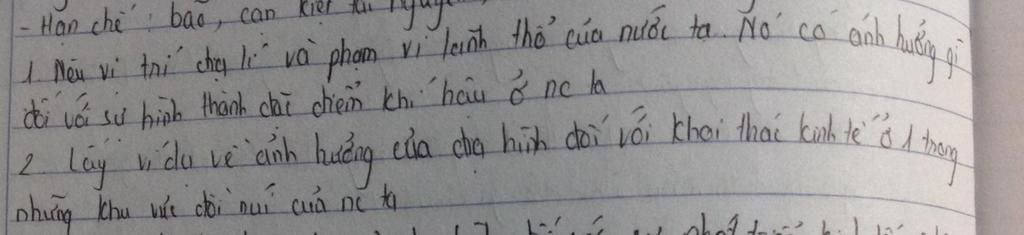 - Hạn chế : bão, cạn kiệt tài nguyê
1 Nêu vị trí địa lí và phạm vi lãnh thổ của nước ta. Nó có ảnh hưởng gì
đối với sự hình thành đặc điểm khí hậu ở nc ta
2 Lấy ví dụ về ảnh hưởng của địa hình đối với khai thác kinh tế ở 1 trong
những khu vực đồi núi của nc ta